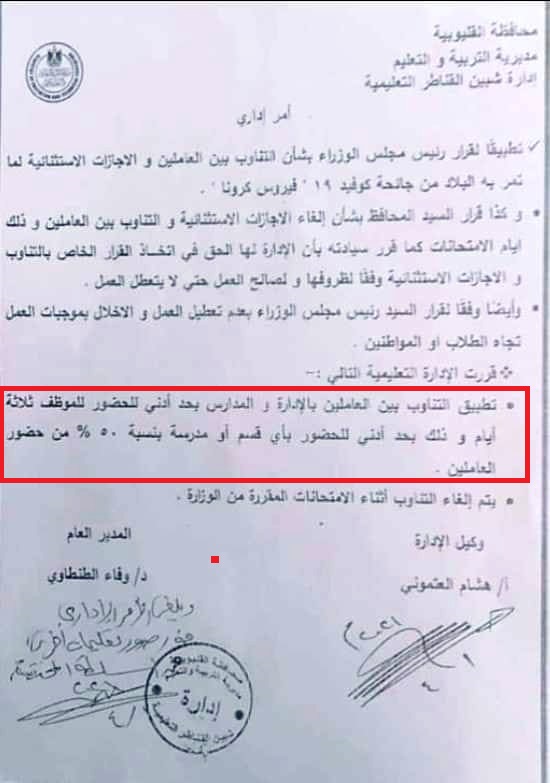 محافظة القليوبية
مديرية التربية و التعليم
إدارة شبين القناطر التعليمية
أمر إداري
✓ تطبيقًا لقرار رئيس مجلس الوزراء بشأن التناوب بين العاملين و الاجازات الاستثنائية لما
تمر به البلاد من جائحة كوفيد ١٩ " فيروس كرونا " .
• و كذا قرار السيد المحافظ بشأن إلغاء الاجازات الاستثنائية و التناوب بين العاملين و ذلك
ايام الامتحانات كما قرر سيادته بأن الإدارة لها الحق في اتخاذ القرار الخاص بالتناوب
و الاجازات الاستثنائية وفقًا لظروفها و لصالح العمل حتي لا يتعطل العمل .
• وأيضًا وفقًا لقرار السيد رئيس مجلس الوزراء بعدم تعطيل العمل و الاخلال بموجبات العمل
تجاه الطلاب او المواطنين .
❖ قررت الإدارة التعليمية التالي :-
• تطبيق التناوب بين العاملين بالإدارة و المدارس بحد أدني للحضور للموظف ثلاثة
أيام و ذلك بحد أدني للحضور بأي قسم أو مدرسة بنسبة ٥٠ % من حضور
العاملين .
• يتم إلغاء التناوب أثناء الامتحانات المقررة من الوزارة .
وكيل الإدارة
المدير العام
أ/ هشام العتموني
د/ وفاء الطنطاوي
محافظة القليوبية
مديرية التربية والتعليم
إدارة
شبين القناطر التعليمية